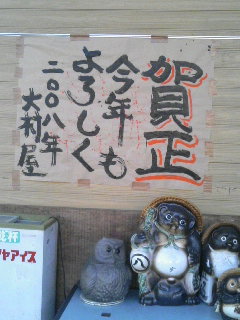 賀正
今年も
よろしく
二〇〇八年
大村屋
ヤアイス
八